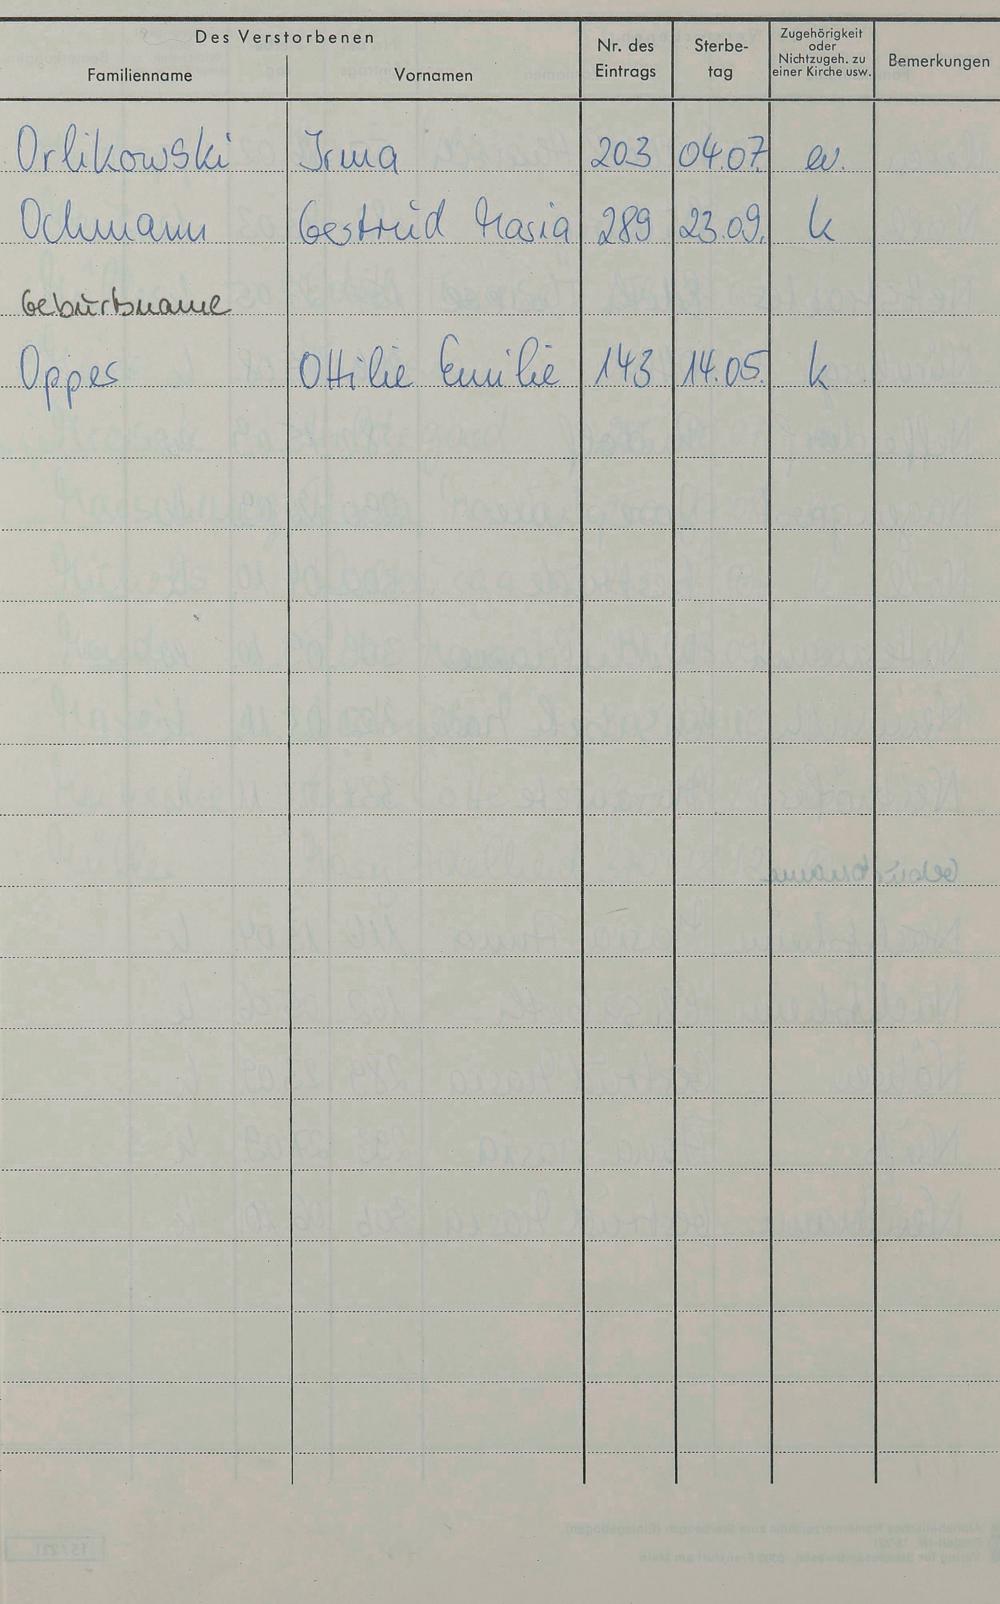 Des Verstorbenen
Familienname
Vornamen
Nr. des
Eintrags
Sterbe-
tag
Zugehörigkeit
oder
Nichtzugeh. zu
einer Kirche usw.
Bemerkungen
Orlikowski Irma 203 04.07. ev.
Ochmann Gertrud Maria 289 23.09. k
Geburtsname
Oppes Ottilie Emilie 143 14.05. k